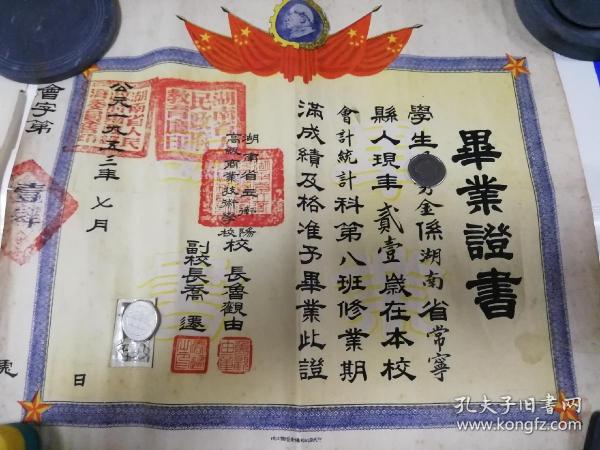 畢業證書
學生金係湖南省常寧
縣人現年貳壹歲在本校
會計統計科第八班修業期
滿成績及格准予畢業此證
湖南省立衡陽
高級商業技術學校
校長魯觀由
副校長喬遷
公元一九五二年七月
日
會字第
壹
號
孔夫子旧书网
www.kongfz.com